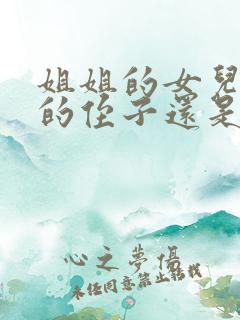 姐姐的女兒
的侄子還是
心之夢傷
未任同意禁止轉載